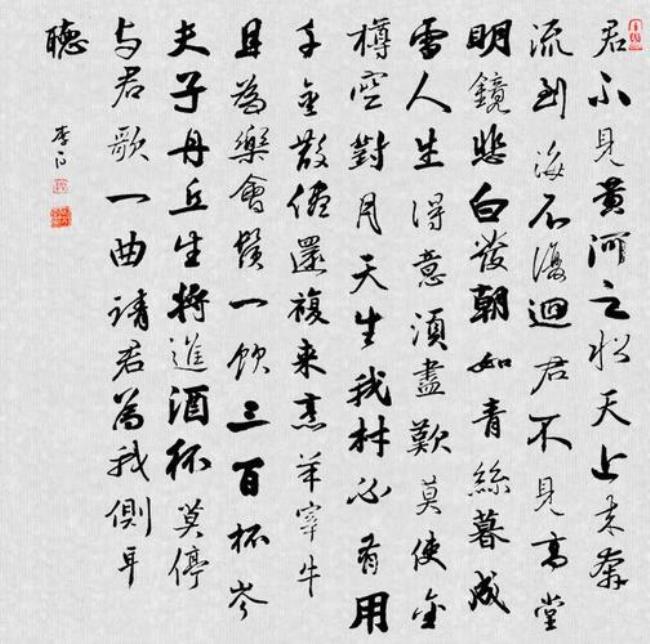 君不見黄河之水天上来奔
流到海不復迴君不見高堂
明鏡悲白發朝如青絲暮成
雪人生得意須盡歎莫使金
樽空對月天生我材必有用
千金散儘還複来烹羊宰牛
且為樂會須一飲三百杯岑
夫子丹丘生将進酒杯莫停
与君歌一曲請君為我側耳
聽
李白